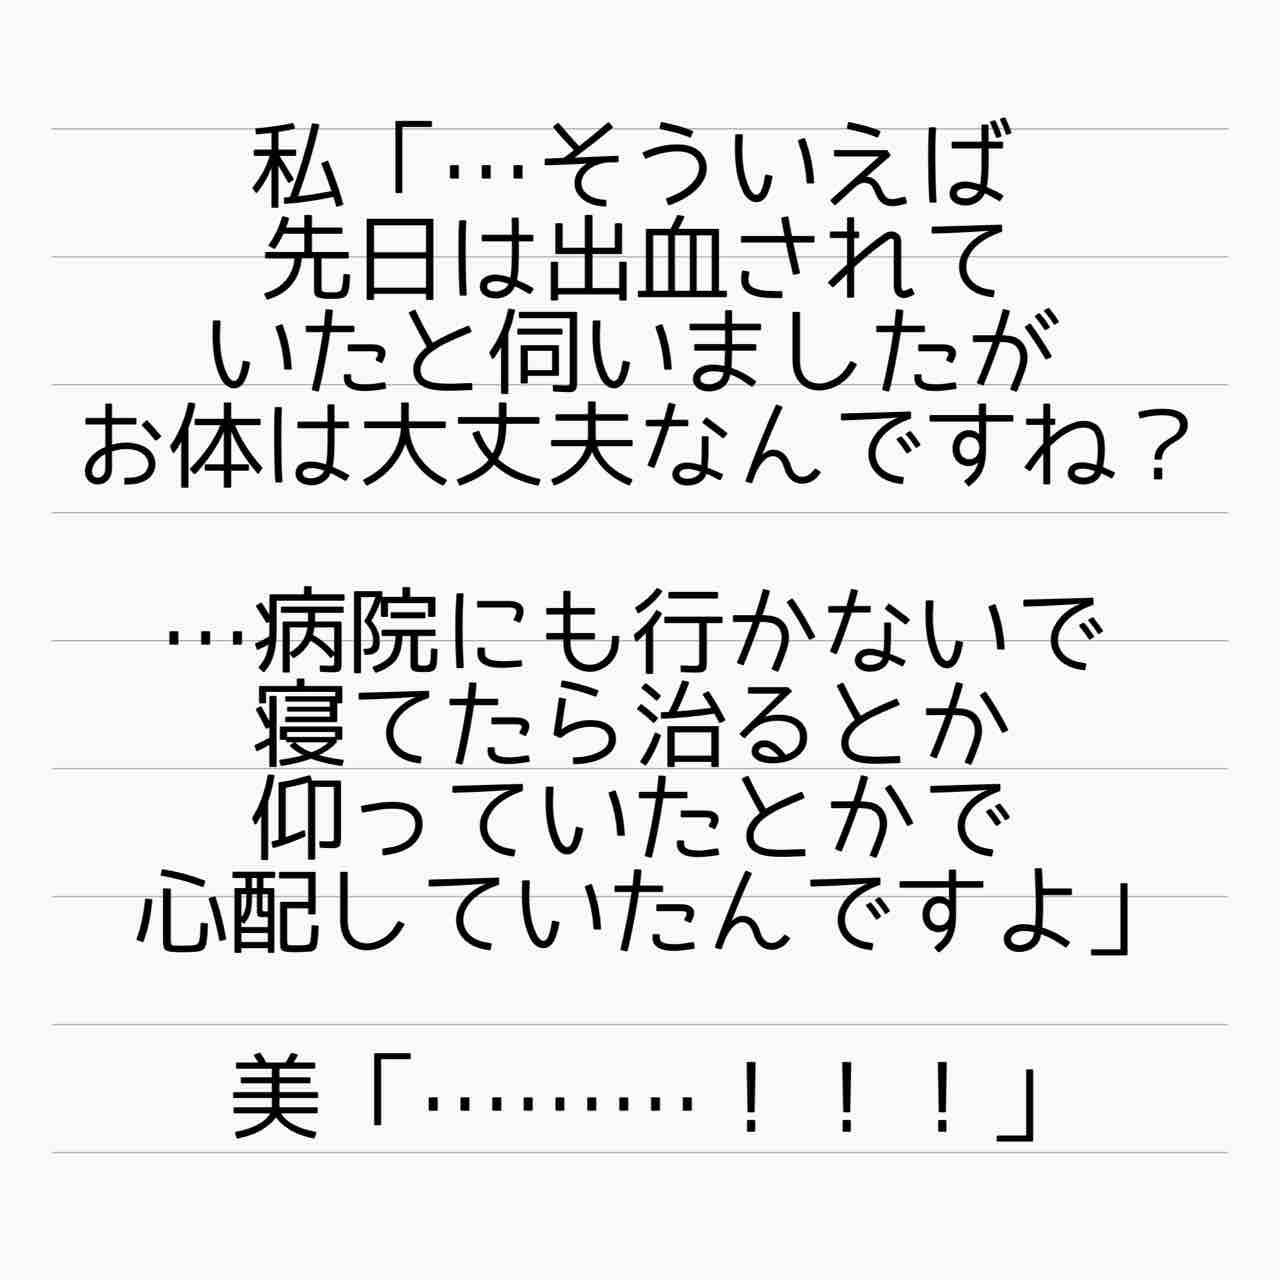 私「…そういえば
先日は出血されて
いたと伺いましたが
お体は大丈夫なんですね？
…病院にも行かないで
寝てたら治るとか
仰っていたとかで
心配していたんですよ」
美「………！！！」